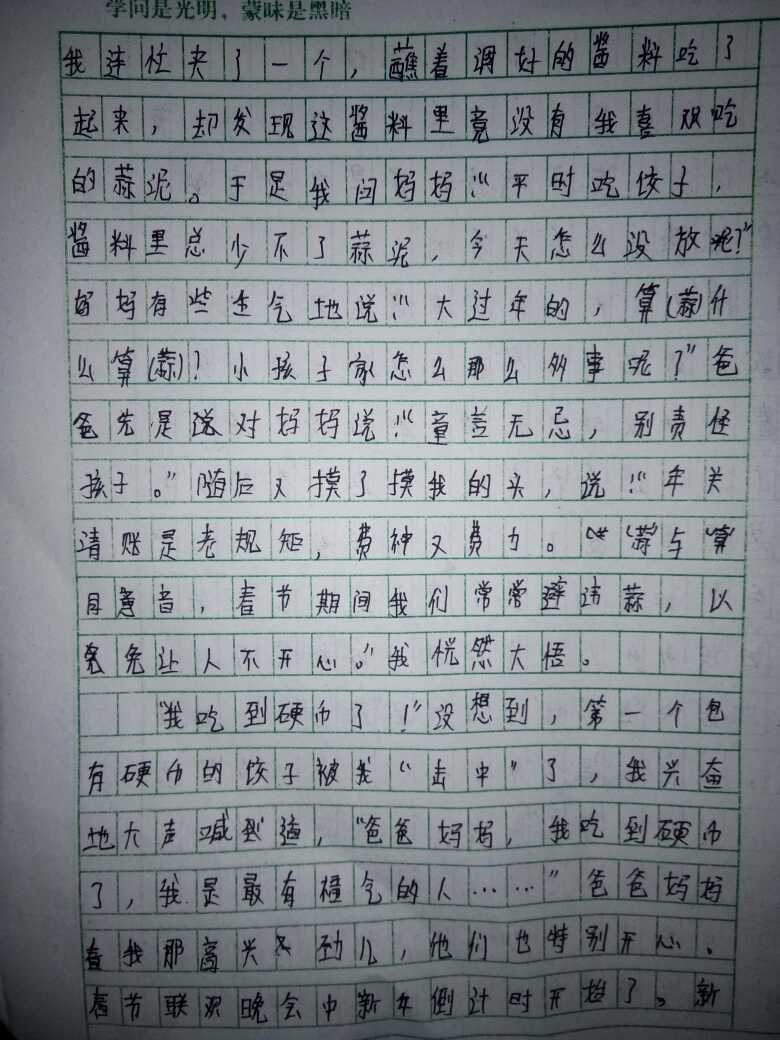 学问是光明，蒙昧是黑暗
我连忙夹了一个，蘸着调好的酱料吃了
起来，却发现这酱料里竟没有我喜欢吃
的蒜泥。于是我问妈妈：“平时吃饺子，
酱料里总少不了蒜泥，今天怎么没放呢？”
妈妈有些生气地说：“大过年的，算(蒜)什
么算(蒜)？小孩子家怎么那么多事呢？”爸
爸先是对妈妈说：“童言无忌，别责怪
孩子。”随后又摸了摸我的头，说：“年关
清账是老规矩，费神又费力。“蒜”与“算”
同音，春节期间我们常常避讳蒜，以
免让人不开心。”我恍然大悟。
“我吃到硬币了！”没想到，第一个包
有硬币的饺子被我“击中”了，我兴奋
地大声喊道，“爸爸妈妈，我吃到硬币
了，我是最有福气的人……”爸爸妈妈
看我那高兴劲儿，他们也特别开心。
春节联欢晚会中新年倒计时开始了。新